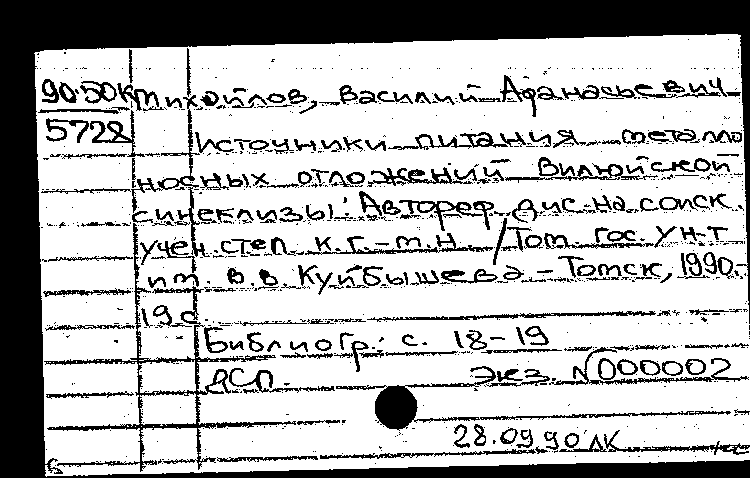 90-50К Михайлов, Василий Афанасьевич
5728 Источники питания металло
носных отложений Вилюйской
синеклизы: Автореф. дис. на соиск.
учен. степ. к. г.-м. н. / Том. гос. ун-т
им. В. В. Куйбышева - Томск, 1990.-
19 с.
Библиогр.: с. 18-19
ДСП. Экз. №000002
28.09.90 ЛК